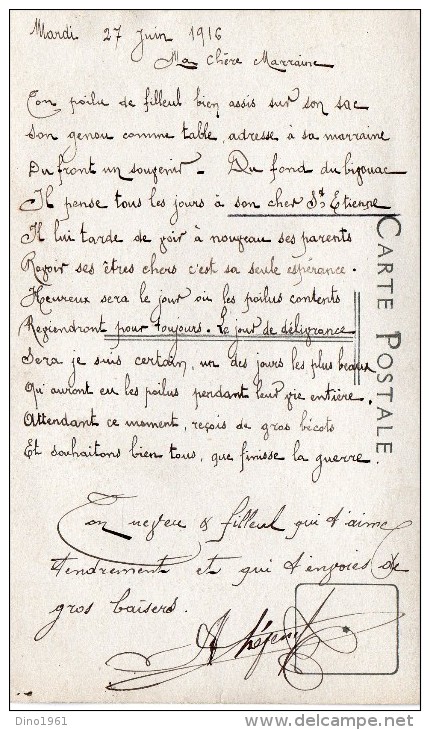 Mardi 27 Juin 1916
Ma Chère Marraine
Ton poilu de filleul bien assis sur son sac
Son genou comme table, adresse à sa marraine
Du front un souvenir - Du fond du bivouac
Il pense tous les jours à son cher St Etienne
Il lui tarde de voir à nouveau ses parents
Revoir ses êtres chers c'est sa seule espérance.
Heureux sera le jour où les poilus contents
Reviendront pour toujours. Le jour de délivrance
Sera je suis certain, un des jours les plus beaux
Qu'auront eu les poilus pendant leur vie entière.
Attendant ce moment, reçois de gros bécots
Et souhaitons bien tous, que finisse la guerre.
Ton neveu & filleul qui t'aime
tendrement et qui t'envoies de
gros baisers.
CARTE POSTALE
Dino1961